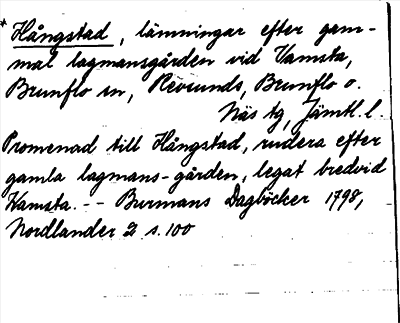 * Hångstad, lämningar efter gam-
mal lagmansgården vid Vamsta,
Brunflo sn, Revsunds, Brunflo o.
Näs tg, Jämtl. l.
Promenad till Hångstad, rudera efter
gamla lagmans-gården, legat bredvid
Wamsta. - - Burmans Dagböcker 1798,
Nordlander 2 s. 100